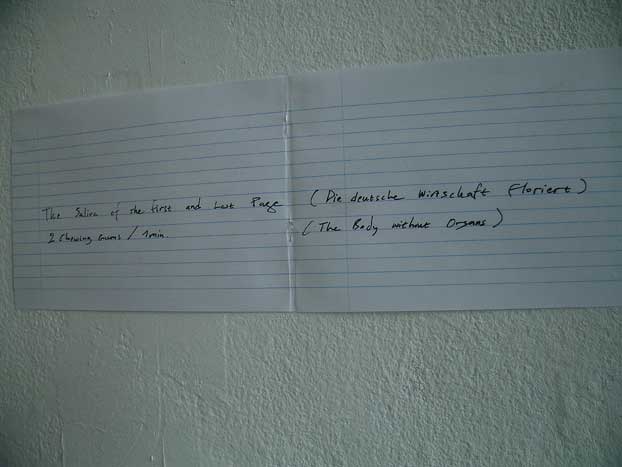 The Saliva of the first and Last Page (Die deutsche Wirtschaft floriert)
2 Chewing Gums / 1min. (The Body without Organs)